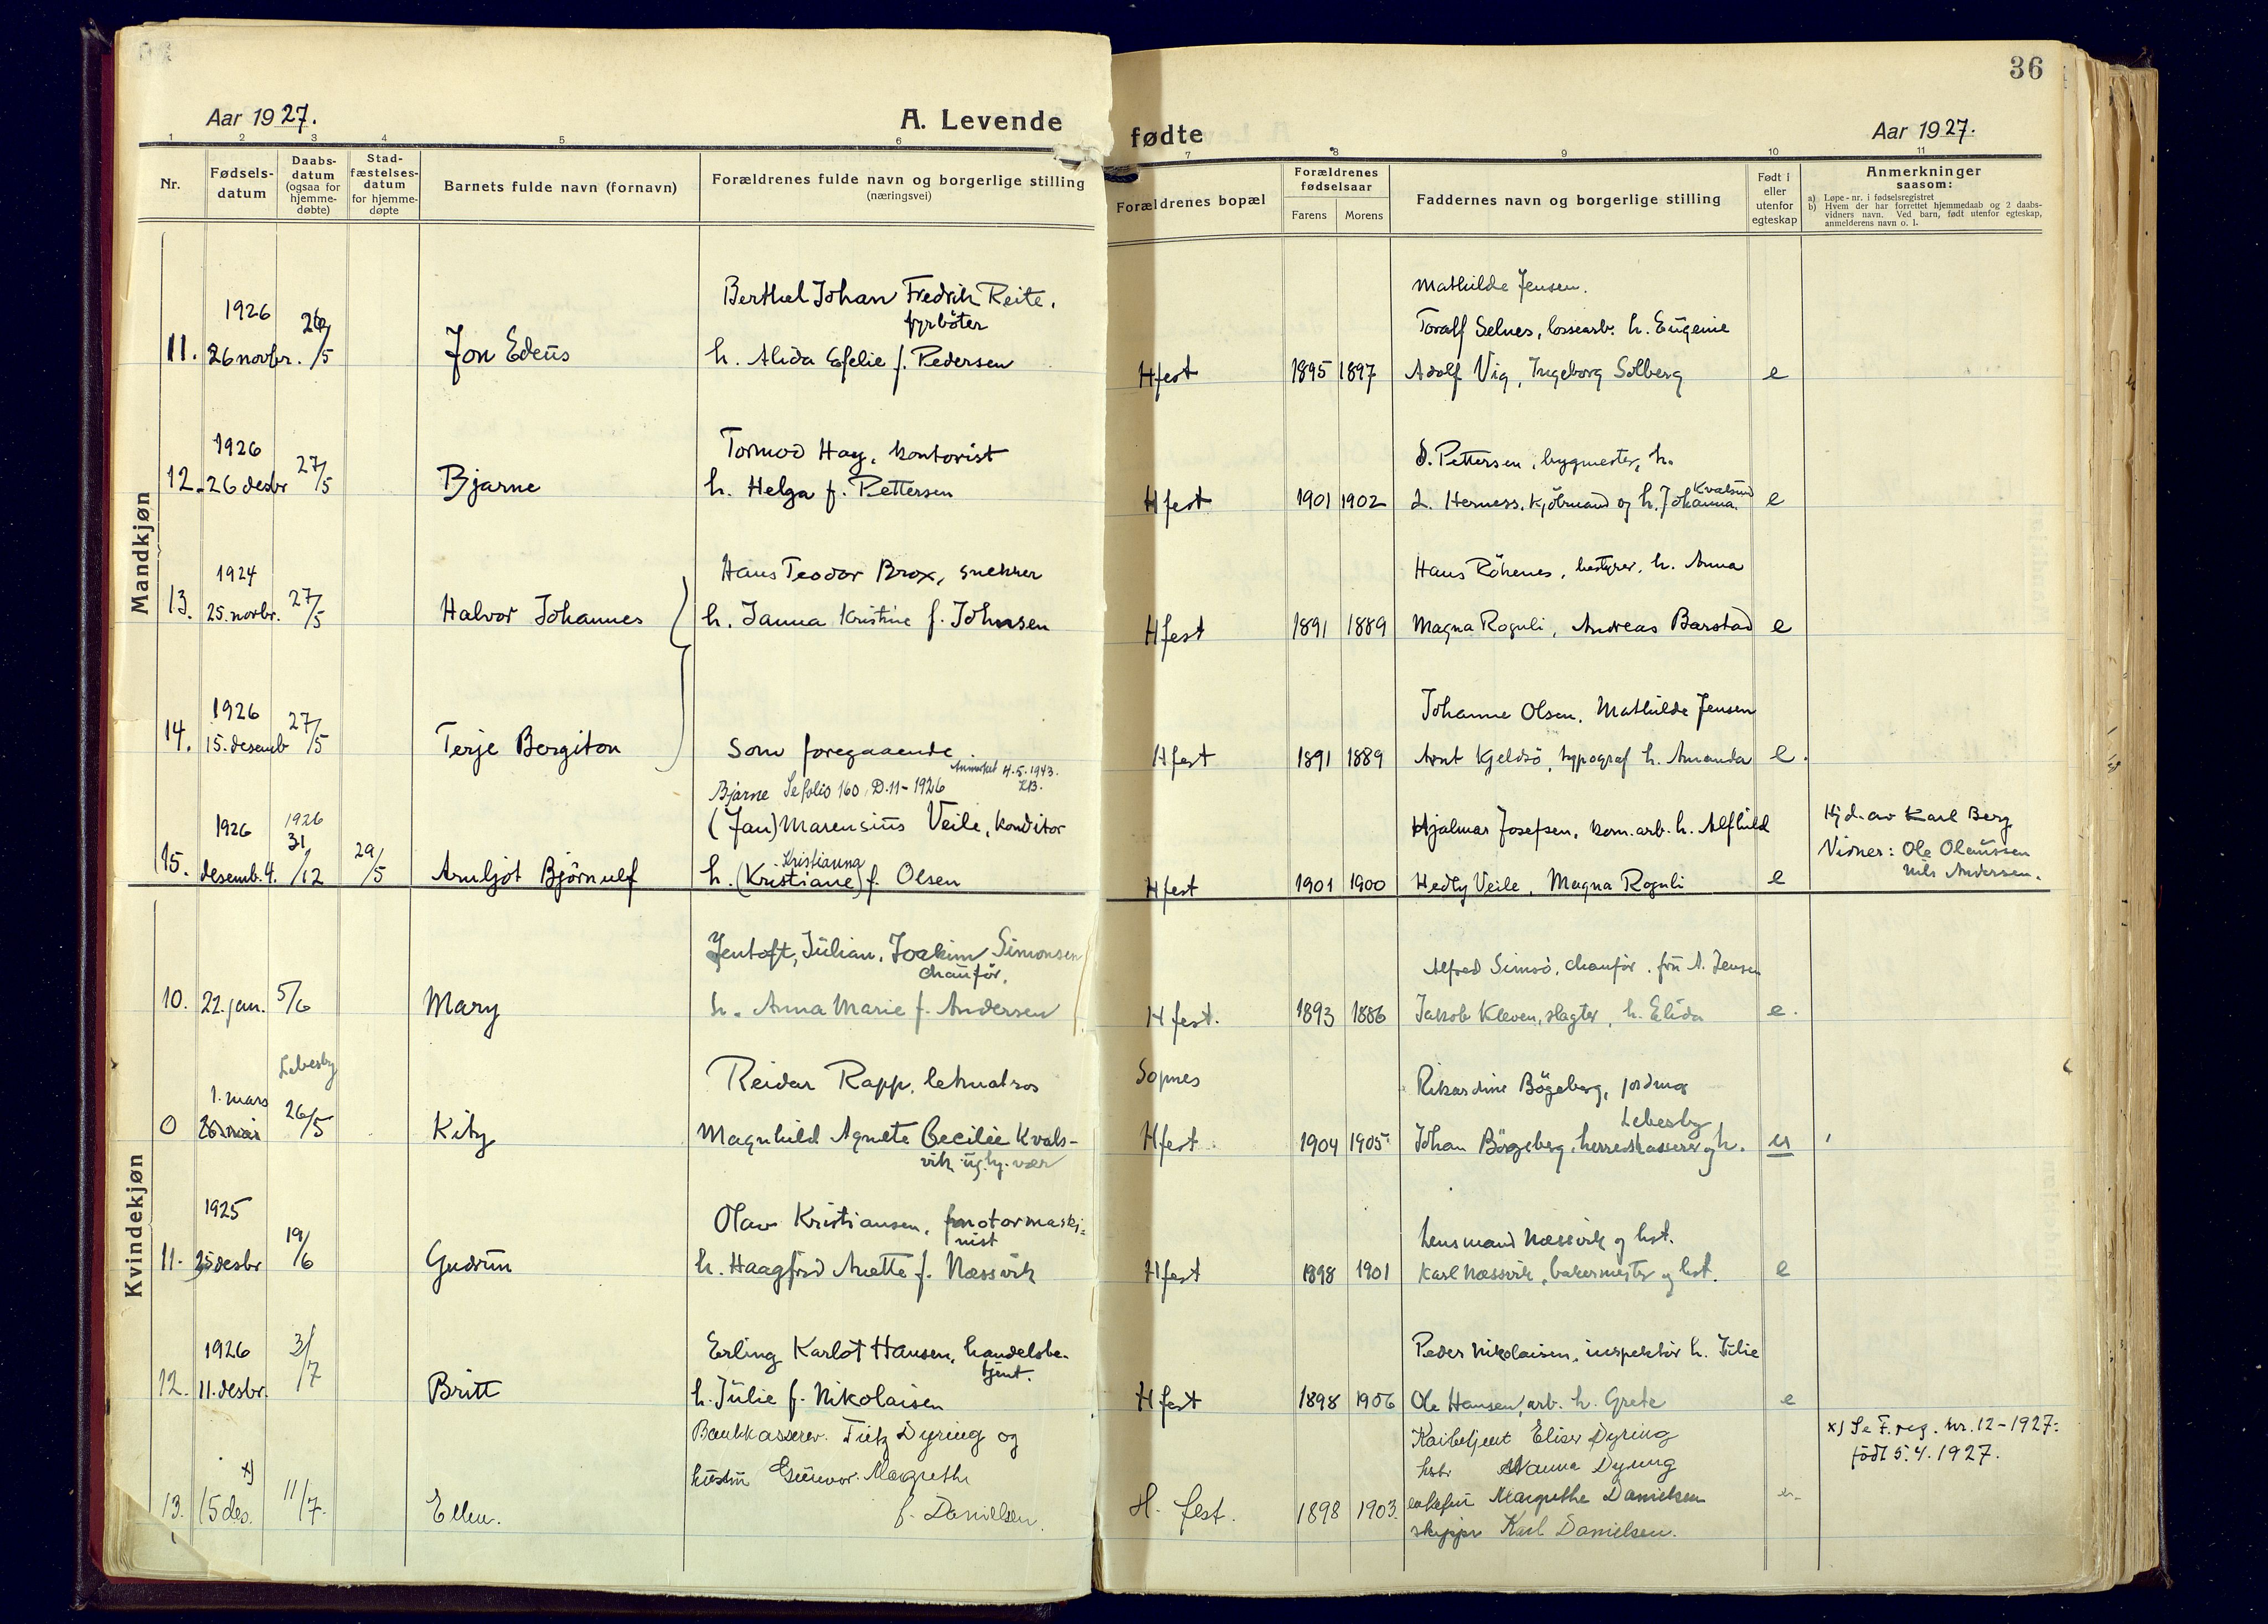 36
Aar 1927.
A. Levende
fødte
Aar 1927.
1 2 3 4 5 6 7 8 9 10 11
Nr.
Fødsels-
datum
Daabs-
datum
(ogsaa for
hjemme-
døbte)
Stad-
fæstelses-
datum
for hjemme-
døpte
Barnets fulde navn (fornavn)
Forældrenes fulde navn og borgerlige stilling
(næringsvei)
Forældrenes bopæl
Forældrenes
fødselsaar
Farens Morens
Faddernes navn og borgerlige stilling
Født i
eller
utenfor
egteskap
Anmerkninger
saasom:
a) Løpe-nr. i fødselsregistret
b) Hvem der har forrettet hjemmedaab og 2 daabs-
vidners navn. Ved barn, født utenfor egteskap,
anmelderens navn o. l.
Mandkjøn
Berthel Johan Fredrik Reite,
fyrbøter
Mathilde Jensen.
1926
Toralf Selnes, lossearb. h. Eugenie
11. 26 novbr. 26/5 Jon Edeus h. Alida Efelie f. Pedersen Hfest 1895 1897 Adolf Vig, Ingeborg Solberg e
1926 Tormod Hay, kontorist
S. Pettersen, bygmester, h.
12. 26 desbr 27/5 Bjarne h. Helga f. Pettersen Hfest 1901 1902 L. Herness, kjøbmand og h. Johanna. Kvalsund e
1924 Hans Teodor Brox, snekker
Hans Røkenes, bestyrer, h. Anna
13. 25. novbr. 27/5 Halvor Johannes h. Janna Kristine f. Johnsen Hfest 1891 1889 Magna Roguli, Andreas Barstad e
1926
Johanne Olsen, Mathilde Jensen
14. 15. desemb 27/5 Terje Bergiton Som foregaaende. Hfest 1891 1889 Arnt Kjeldsø, typograf h. Amanda e.
Anmerket 4.5.1943.
Bjarne Se folio 160, D. 11-1926
1926 1926 (Jan) Marensius Veile, konditor
Hjalmar Josefsen, kom. arb. h. Alfhild
Hjd. av Karl Berg
Vidner: Ole Olaussen
Nils Andersen.
15. desemb. 4. 31/12 29/5 Arnljot Bjørnulf h. (Kristiane) Kristianna f. Olsen Hfest 1901 1900 Hedly Veile, Magna Roguli e
Kvindekjøn
Jentoft, Julian, Joakim Simonsen
chauffør.
Alfred Simsø, chauffør. fru A. Jensen
10. 22. jan. 5/6 Mary h. Anna Marie f. Andersen Hfest. 1893 1886 Jakob Kleven, slagter, h. Elida e.
Lebesby
Reidar Rapp, letmatros Sopnes
Rikardine Bøgeberg, jordmor
Lebesby
1. mars
0 26/5 Kity Magnhild Agnete Cecilie Kvals-
vik ug. hj. vær
Hfest 1904 1905 Johan Bøgeberg, herredskasserer og h. u
1925 Olav Kristiansen, motormaski-
nist
Lensmand Næssvik og hst.
11. 25 desbr 19/6 Gudrun h. Haagfrid Anette f. Næssvik Hfest 1898 1901 Karl Næssvik, bakermester og hst. e
1926 Erling Karlot Hansen, handelsbe-
tjent.
Peder Nikolaisen, inspektør h. Julie
12. 11. desbr. 3/7 Britt h. Julie f. Nikolaisen Hfest 1898 1906 Ole Hansen, arb. h. Grete e
Bankkasserer Fietz Dyring og
hustru Gunvor Margrethe
f. Danielsen.
x)
13. 15 des. 11/7. Ellen. H. fest. 1898 1903.
Kaibetjent Eliser Dyring
hstr. Nanna Dyring
enkefru Margrethe Danielsen
skipper Karl Danielsen.
x) Se F. reg. nr. 12-1927:
født 5.4.1927.